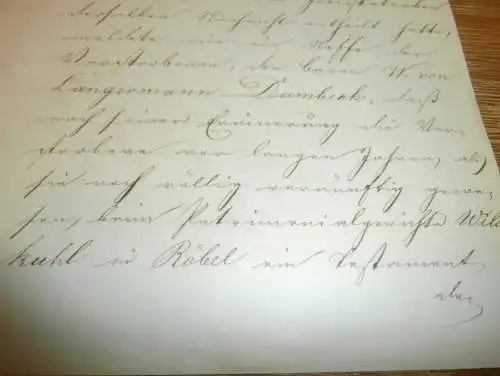 derselben Nachricht ertheilt hatte,
meldete mir ein Neffe der
Verstorbenen, der Herr W. von
Langermann Dambeck, daß
nach seiner Erinnerung die Ver
storbene vor langen Jahren, als
sie noch völlig vernünftig gewe-
sen, beim Patrimonialgerichte Wild
kuhl in Röbel ein Testament